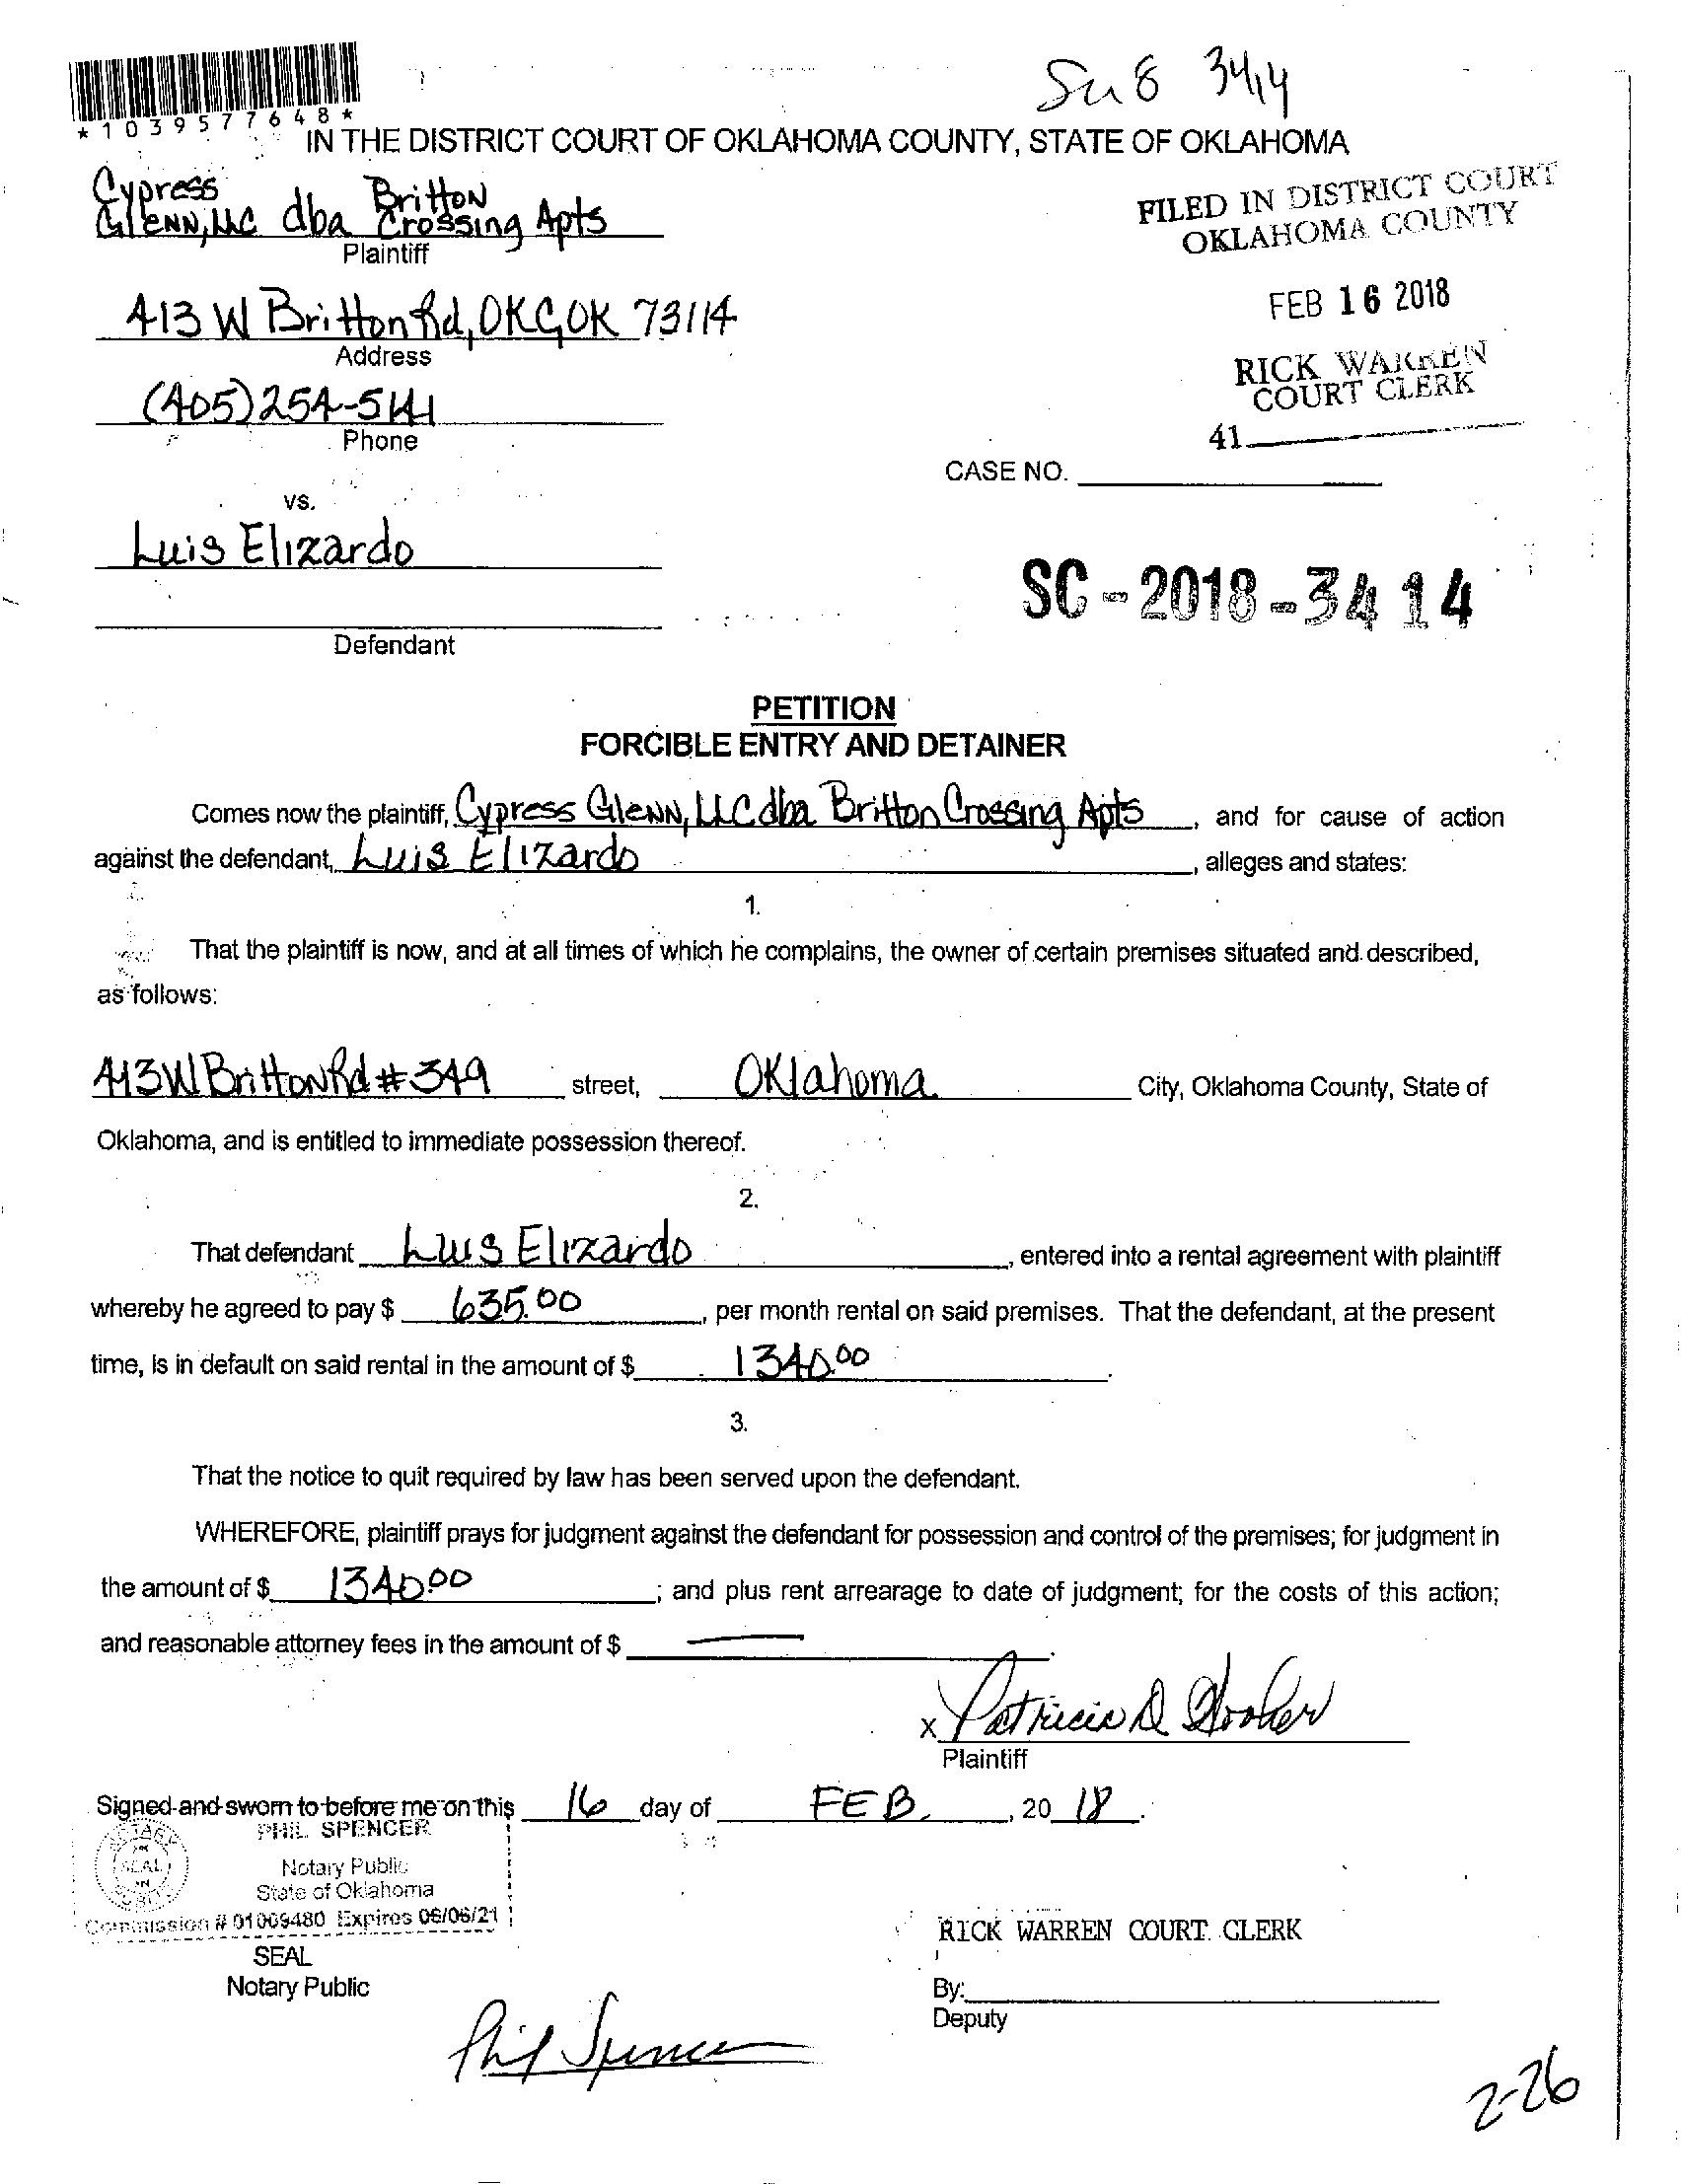 *1039577648*
3414
IN THE DISTRICT COURT OF OKLAHOMA COUNTY, STATE OF OKLAHOMA
Cypress Glenn, LLC dba Britton Crossing Apts
Plaintiff
FILED IN DISTRICT COURT
OKLAHOMA COUNTY
413 W Britton Rd, OKC, OK 73114
Address
FEB 16 2018
RICK WARREN
COURT CLERK
(405) 254-5141
Phone
41
CASE NO.
vs.
Luis Elizardo
SC-2018-3414
Defendant
PETITION
FORCIBLE ENTRY AND DETAINER
Comes now the plaintiff, Cypress Glenn, LLC dba Britton Crossing Apts, and for cause of action
against the defendant, Luis Elizardo, alleges and states:
1.
That the plaintiff is now, and at all times of which he complains, the owner of certain premises situated and described,
as follows:
413 W Britton Rd #349 street, Oklahoma City, Oklahoma County, State of
Oklahoma, and is entitled to immediate possession thereof.
2.
That defendant Luis Elizardo, entered into a rental agreement with plaintiff
whereby he agreed to pay $ 635.00, per month rental on said premises. That the defendant, at the present
time, is in default on said rental in the amount of $ 1340.00.
3.
That the notice to quit required by law has been served upon the defendant.
WHEREFORE, plaintiff prays for judgment against the defendant for possession and control of the premises; for judgment in
the amount of $ 1340.00; and plus rent arrearage to date of judgment; for the costs of this action;
and reasonable attorney fees in the amount of $ —.
x Patricia D Hooker
Plaintiff
Signed and sworn to before me on this 16 day of FEB, 20 18.
PHIL SPENCER
NOTARY
Notary Public
SEAL
State of Oklahoma
Commission # 01009480 Expires 06/06/21
SEAL
RICK WARREN COURT CLERK
Notary Public
By:
Deputy
Phil Spencer
2-26